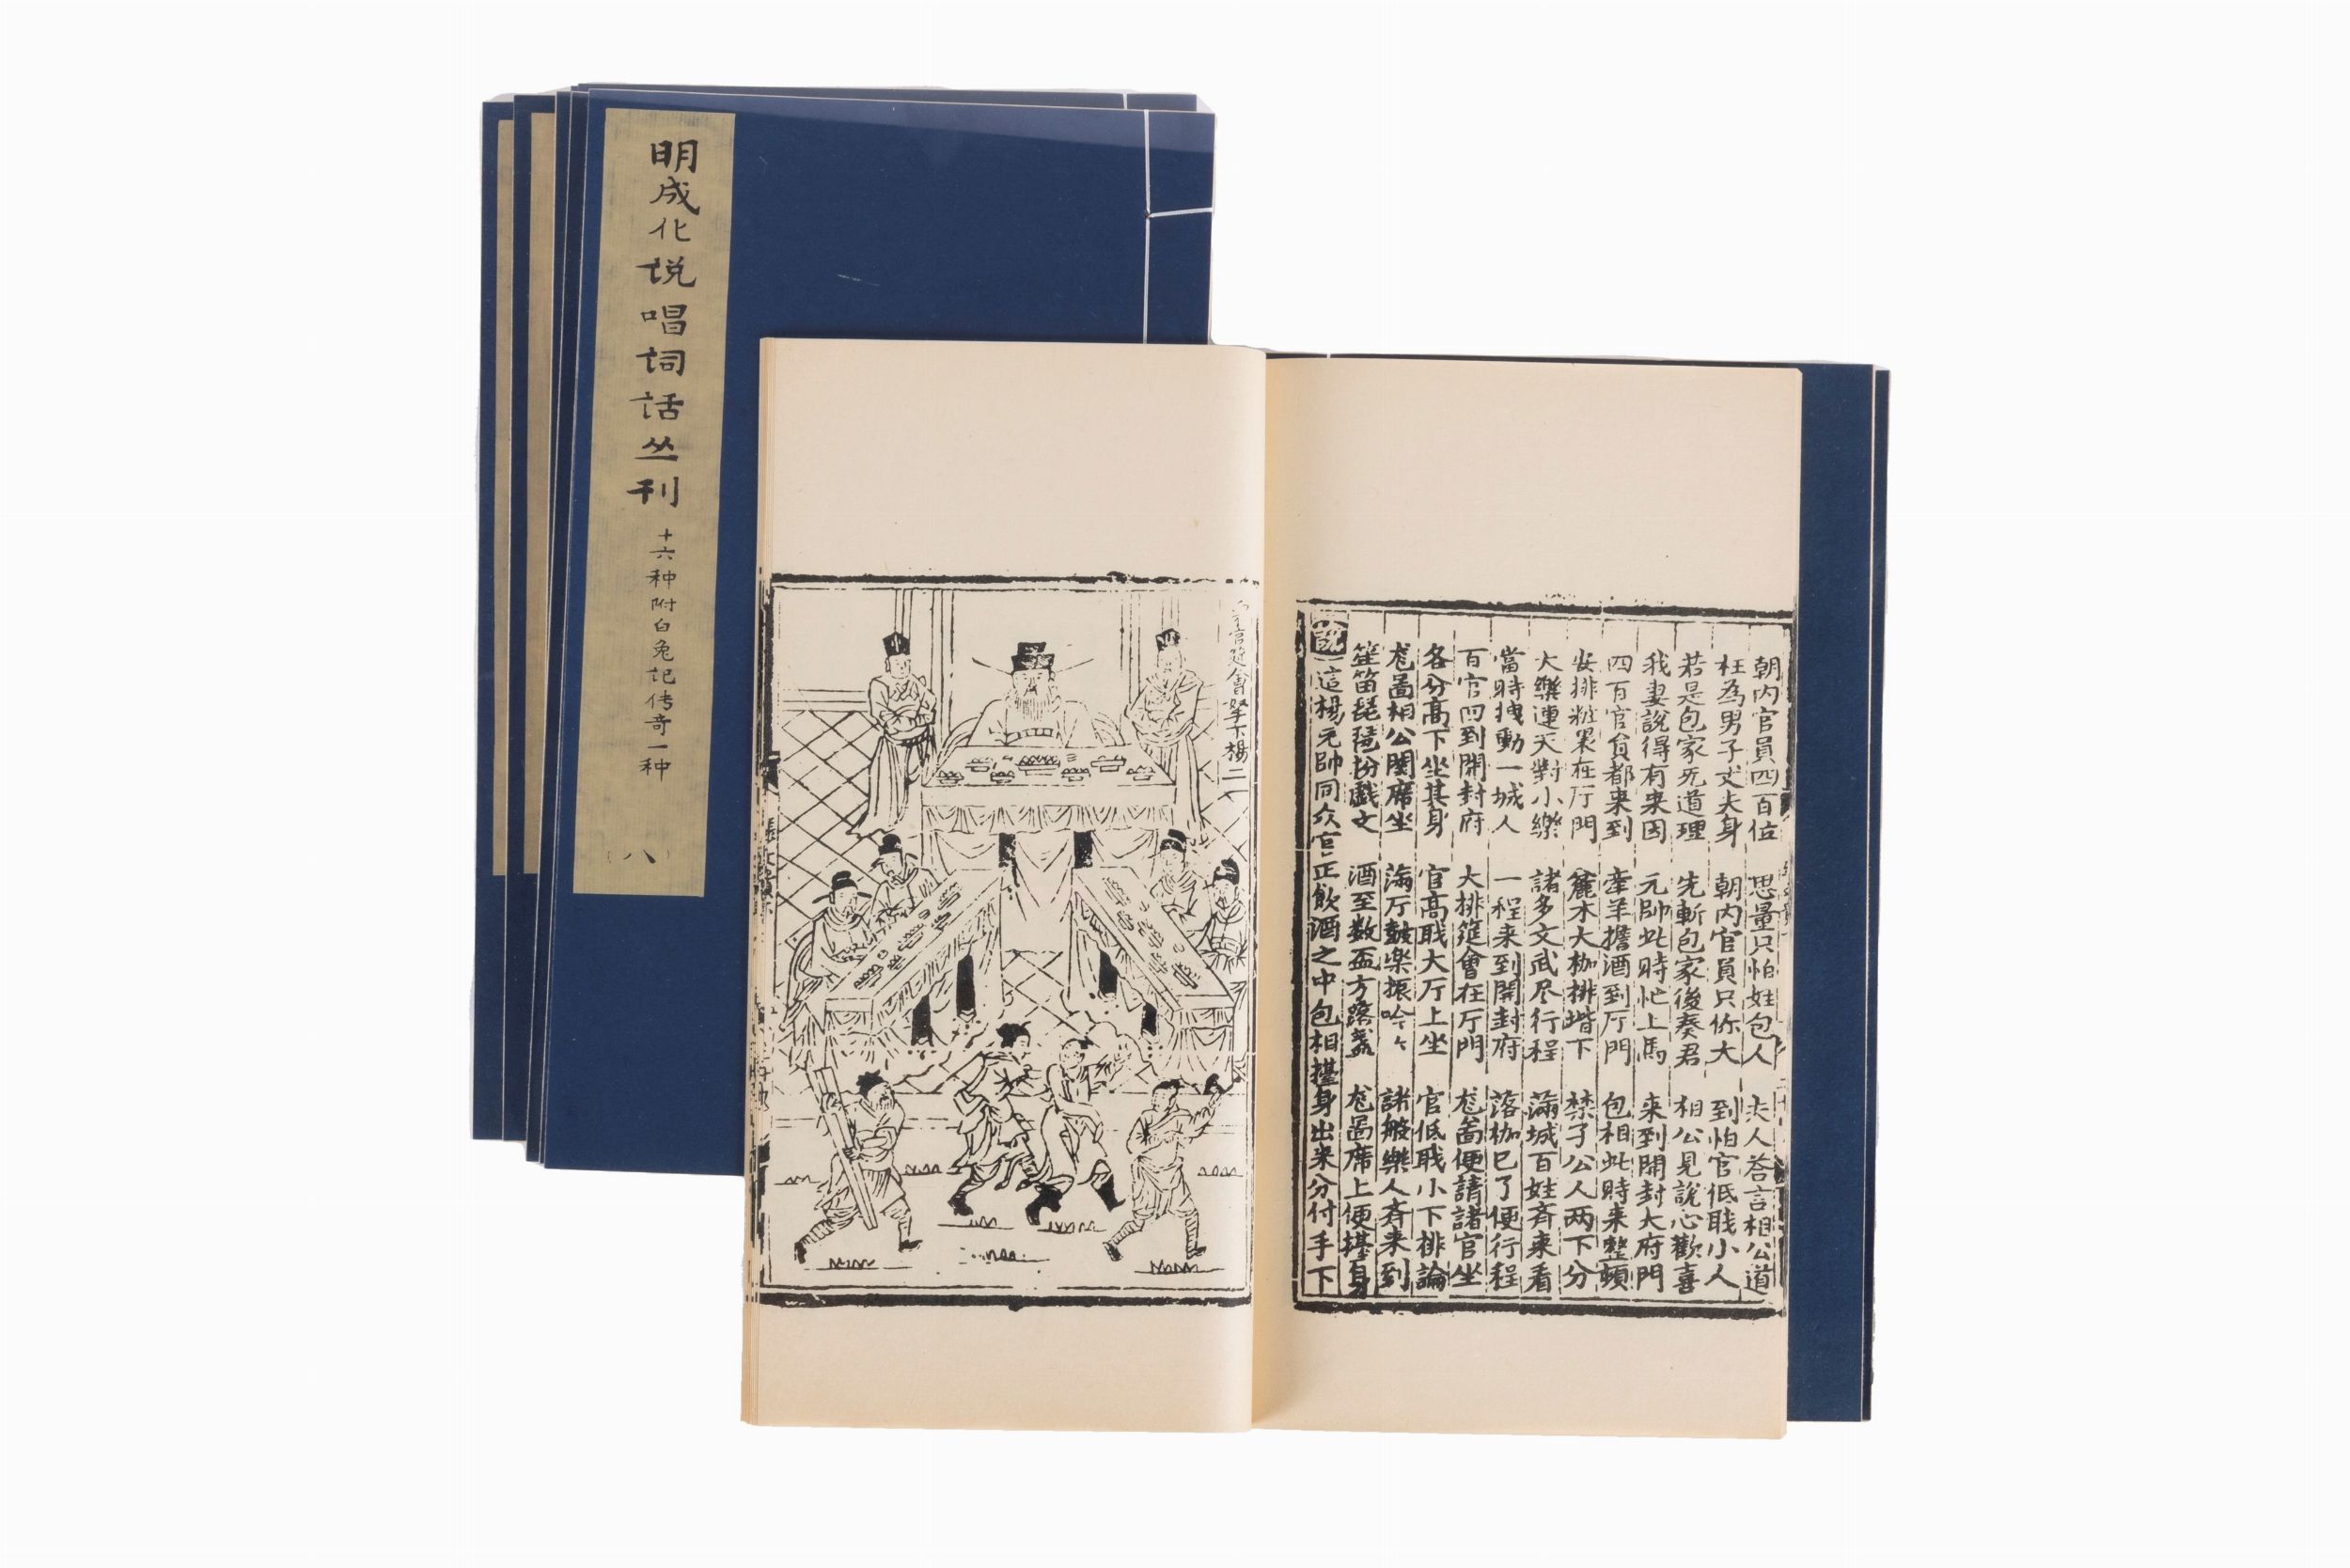 明成化说唱词话丛刊
十六种附白兔记传奇一种
（八）
朝内官員四百位 思量只怕姓包人 夫人荅言相公道
枉為男子丈夫身 朝内官員只你大 到怕官低職小人
若是包家无道理 先斬包家後奏君 相公見說心歡喜
我妻說得有来因 元帥此時忙上馬 来到開封大府門
四百官員都来到 牽羊擔酒到厅門 包相此時来整頓
安排粧果在厅門 麄木大枷排堦下 禁子公人两下分
大樂連天對小樂 諸多文武尽行程 滿城百姓斉来看
當時拽動一城人 一程来到開封府 落枷已了便行程
百官回到開封府 大排筵會在厅門 尨啚便請諸官坐
各分高下坐其身 官高職大厅上坐 官低職小下排論
尨啚相公開席坐 滿厅鼓乐振吟々 諸般樂人斉来到
笙笛琵琶扮戲文 酒至数盃方落盞 尨啚席上便擡身
說 這楊元帥同众官正飲酒之中包相擡身出来分付手下
官筵會拏下楊二